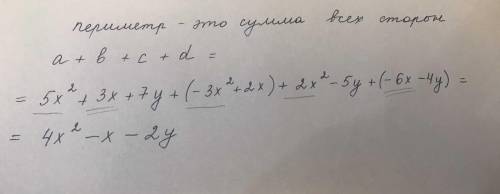 периметр - это сумма всех сторон
a + b + c + d =
= 5x² + 3x + 7y + (-3x² + 2x) + 2x² - 5y + (-6x - 4y) =
= 4x² - x - 2y